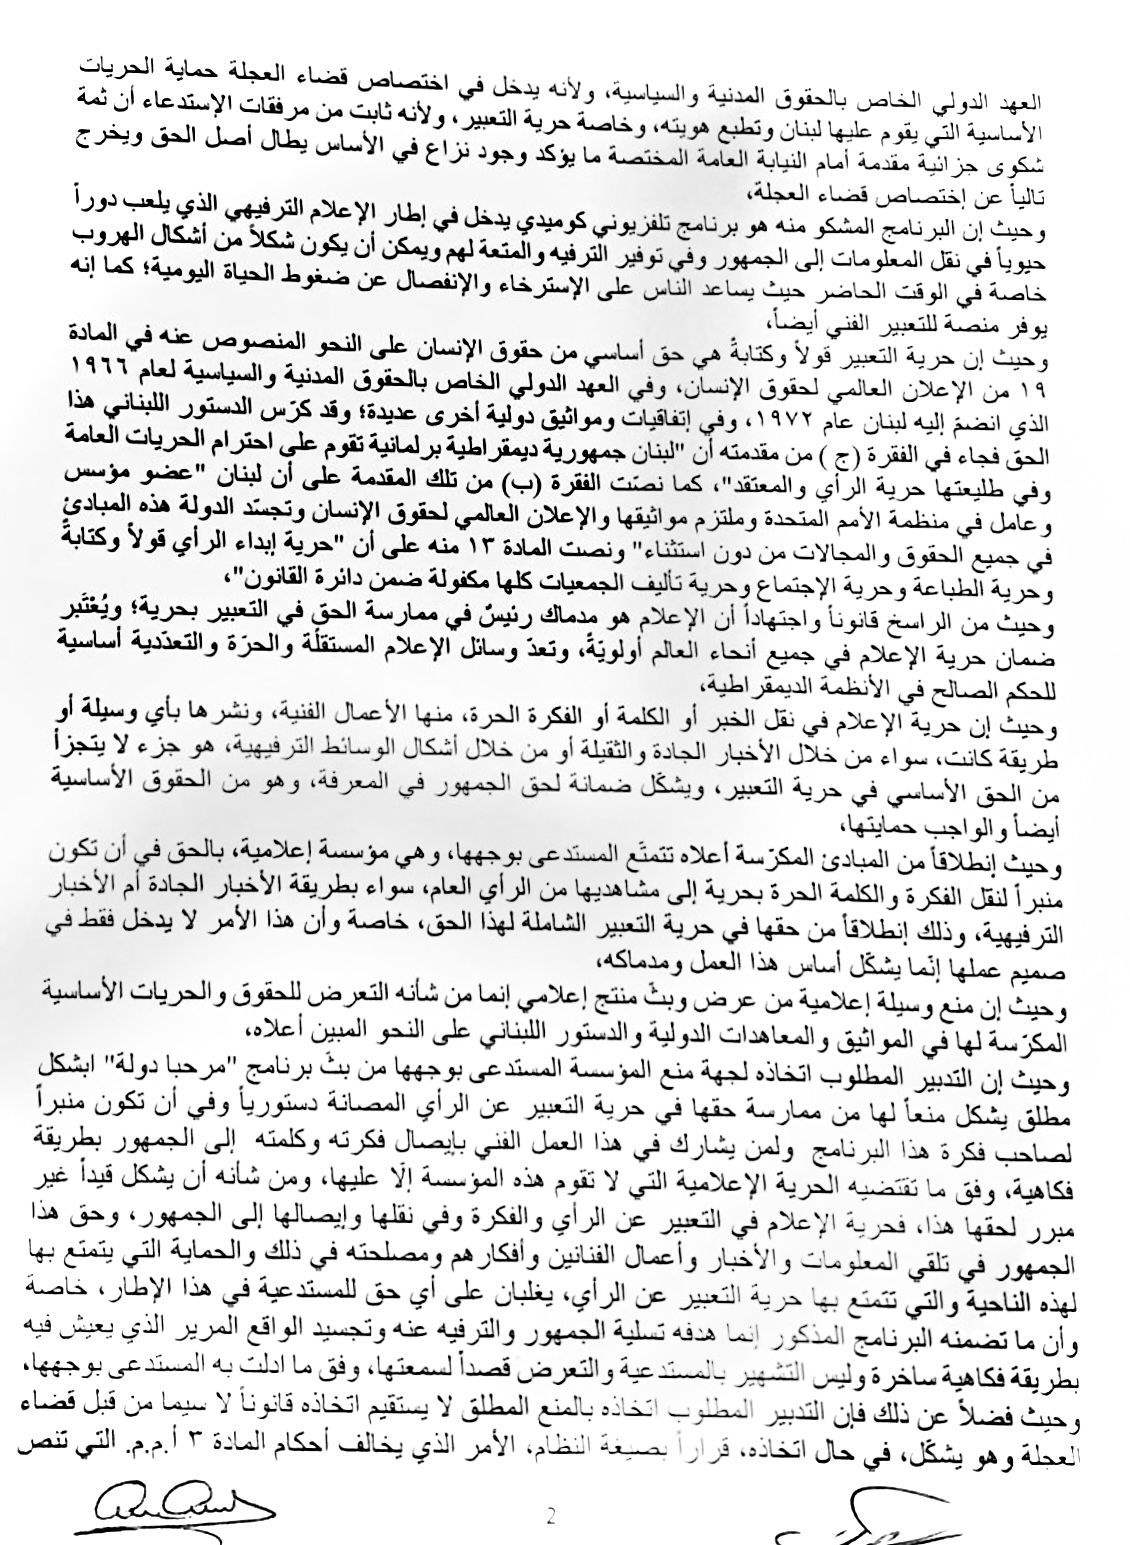 العهد الدولي الخاص بالحقوق المدنية والسياسية، ولأنه يدخل في اختصاص قضاء العجلة حماية الحريات
الأساسية التي يقوم عليها لبنان وتطبع هويته، وخاصة حرية التعبير، ولأنه ثابت من مرفقات الإستدعاء أن ثمة
شكوى جزائية مقدمة أمام النيابة العامة المختصة ما يؤكد وجود نزاع في الأساس يطال أصل الحق ويخرج
تالياً عن إختصاص قضاء العجلة،
وحيث إن البرنامج المشكو منه هو برنامج تلفزيوني كوميدي يدخل في إطار الإعلام الترفيهي الذي يلعب دوراً
حيوياً في نقل المعلومات إلى الجمهور وفي توفير الترفيه والمتعة لهم ويمكن أن يكون شكلاً من أشكال الهروب
خاصة في الوقت الحاضر حيث يساعد الناس على الإسترخاء والإنفصال عن ضغوط الحياة اليومية؛ كما إنه
يوفر منصة للتعبير الفني أيضاً،
وحيث إن حرية التعبير قولاً وكتابةً هي حق أساسي من حقوق الإنسان على النحو المنصوص عنه في المادة
١٩ من الإعلان العالمي لحقوق الإنسان، وفي العهد الدولي الخاص بالحقوق المدنية والسياسية لعام ١٩٦٦
الذي انضمّ إليه لبنان عام ١٩٧٢، وفي إتفاقيات ومواثيق دولية أخرى عديدة؛ وقد كرّس الدستور اللبناني هذا
الحق فجاء في الفقرة (ج) من مقدمته أن "لبنان جمهورية ديمقراطية برلمانية تقوم على احترام الحريات العامة
وفي طليعتها حرية الرأي والمعتقد"، كما نصّت الفقرة (ب) من تلك المقدمة على أن لبنان "عضو مؤسس
وعامل في منظمة الأمم المتحدة وملتزم مواثيقها والإعلان العالمي لحقوق الإنسان وتجسّد الدولة هذه المبادئ
في جميع الحقوق والمجالات من دون استثناء" ونصت المادة ١٣ منه على أن "حرية إبداء الرأي قولاً وكتابةً
وحرية الطباعة وحرية الإجتماع وحرية تأليف الجمعيات كلها مكفولة ضمن دائرة القانون"،
وحيث من الراسخ قانوناً واجتهاداً أن الإعلام هو مدماك رئيسٌ في ممارسة الحق في التعبير بحرية؛ ويُعْتَبر
ضمان حرية الإعلام في جميع أنحاء العالم أولويّةً، وتعدّ وسائل الإعلام المستقلّة والحرّة والتعدّدية أساسية
للحكم الصالح في الأنظمة الديمقراطية،
وحيث إن حرية الإعلام في نقل الخبر أو الكلمة أو الفكرة الحرة، منها الأعمال الفنية، ونشرها بأي وسيلة أو
طريقة كانت، سواء من خلال الأخبار الجادة والثقيلة أو من خلال أشكال الوسائط الترفيهية، هو جزء لا يتجزأ
من الحق الأساسي في حرية التعبير، ويشكّل ضمانة لحق الجمهور في المعرفة، وهو من الحقوق الأساسية
أيضاً والواجب حمايتها،
وحيث إنطلاقاً من المبادئ المكرّسة أعلاه تتمتّع المستدعى بوجهها، وهي مؤسسة إعلامية، بالحق في أن تكون
منبراً لنقل الفكرة والكلمة الحرة بحرية إلى مشاهديها من الرأي العام، سواء بطريقة الأخبار الجادة أم الأخبار
الترفيهية، وذلك إنطلاقاً من حقها في حرية التعبير الشاملة لهذا الحق، خاصة وأن هذا الأمر لا يدخل فقط في
صميم عملها إنّما يشكّل أساس هذا العمل ومدماكه،
وحيث إن منع وسيلة إعلامية من عرض وبثّ منتج إعلامي إنما من شأنه التعرض للحقوق والحريات الأساسية
المكرّسة لها في المواثيق والمعاهدات الدولية والدستور اللبناني على النحو المبين أعلاه،
وحيث إن التدبير المطلوب اتخاذه لجهة منع المؤسسة المستدعى بوجهها من بثّ برنامج "مرحبا دولة" ابشكل
مطلق يشكل منعاً لها من ممارسة حقها في حرية التعبير عن الرأي المصانة دستورياً وفي أن تكون منبراً
لصاحب فكرة هذا البرنامج ولمن يشارك في هذا العمل الفني بإيصال فكرته وكلمته إلى الجمهور بطريقة
فكاهية، وفق ما تقتضيه الحرية الإعلامية التي لا تقوم هذه المؤسسة إلّا عليها، ومن شأنه أن يشكل قيداً غير
مبرر لحقها هذا، فحرية الإعلام في التعبير عن الرأي والفكرة وفي نقلها وإيصالها إلى الجمهور، وحق هذا
الجمهور في تلقي المعلومات والأخبار وأعمال الفنانين وأفكارهم ومصلحته في ذلك والحماية التي يتمتع بها
لهذه الناحية والتي تتمتع بها حرية التعبير عن الرأي، يغلبان على أي حق للمستدعية في هذا الإطار، خاصة
وأن ما تضمنه البرنامج المذكور إنما هدفه تسلية الجمهور والترفيه عنه وتجسيد الواقع المرير الذي يعيش فيه
بطريقة فكاهية ساخرة وليس التشهير بالمستدعية والتعرض قصداً لسمعتها، وفق ما ادلت به المستدعى بوجهها،
وحيث فضلاً عن ذلك فإن التدبير المطلوب اتخاذه بالمنع المطلق لا يستقيم اتخاذه قانوناً لا سيما من قبل قضاء
العجلة وهو يشكّل، في حال اتخاذه، قراراً بصيغة النظام، الأمر الذي يخالف أحكام المادة ٣ أ.م.م. التي تنص
2